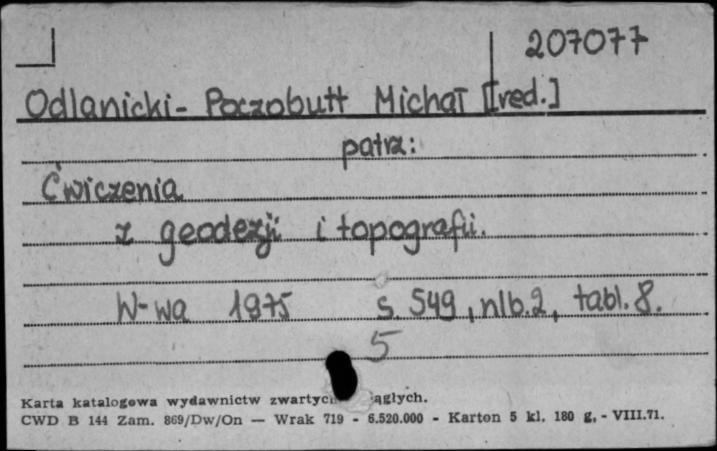 207077
Odlanicki-Poczobutt Michał [red.]
patrz:
Ćwiczenia
z geodezji i topografii.
W-wa 1975 s. 549, nlb.2, tabl. 8.
5
Karta katalogowa wydawnictw
CWD B 144 Zam. 869/Dw/On — Wrak 719 - 6.520.000 - Karton 5 kl. 180 g. - VIII.71.